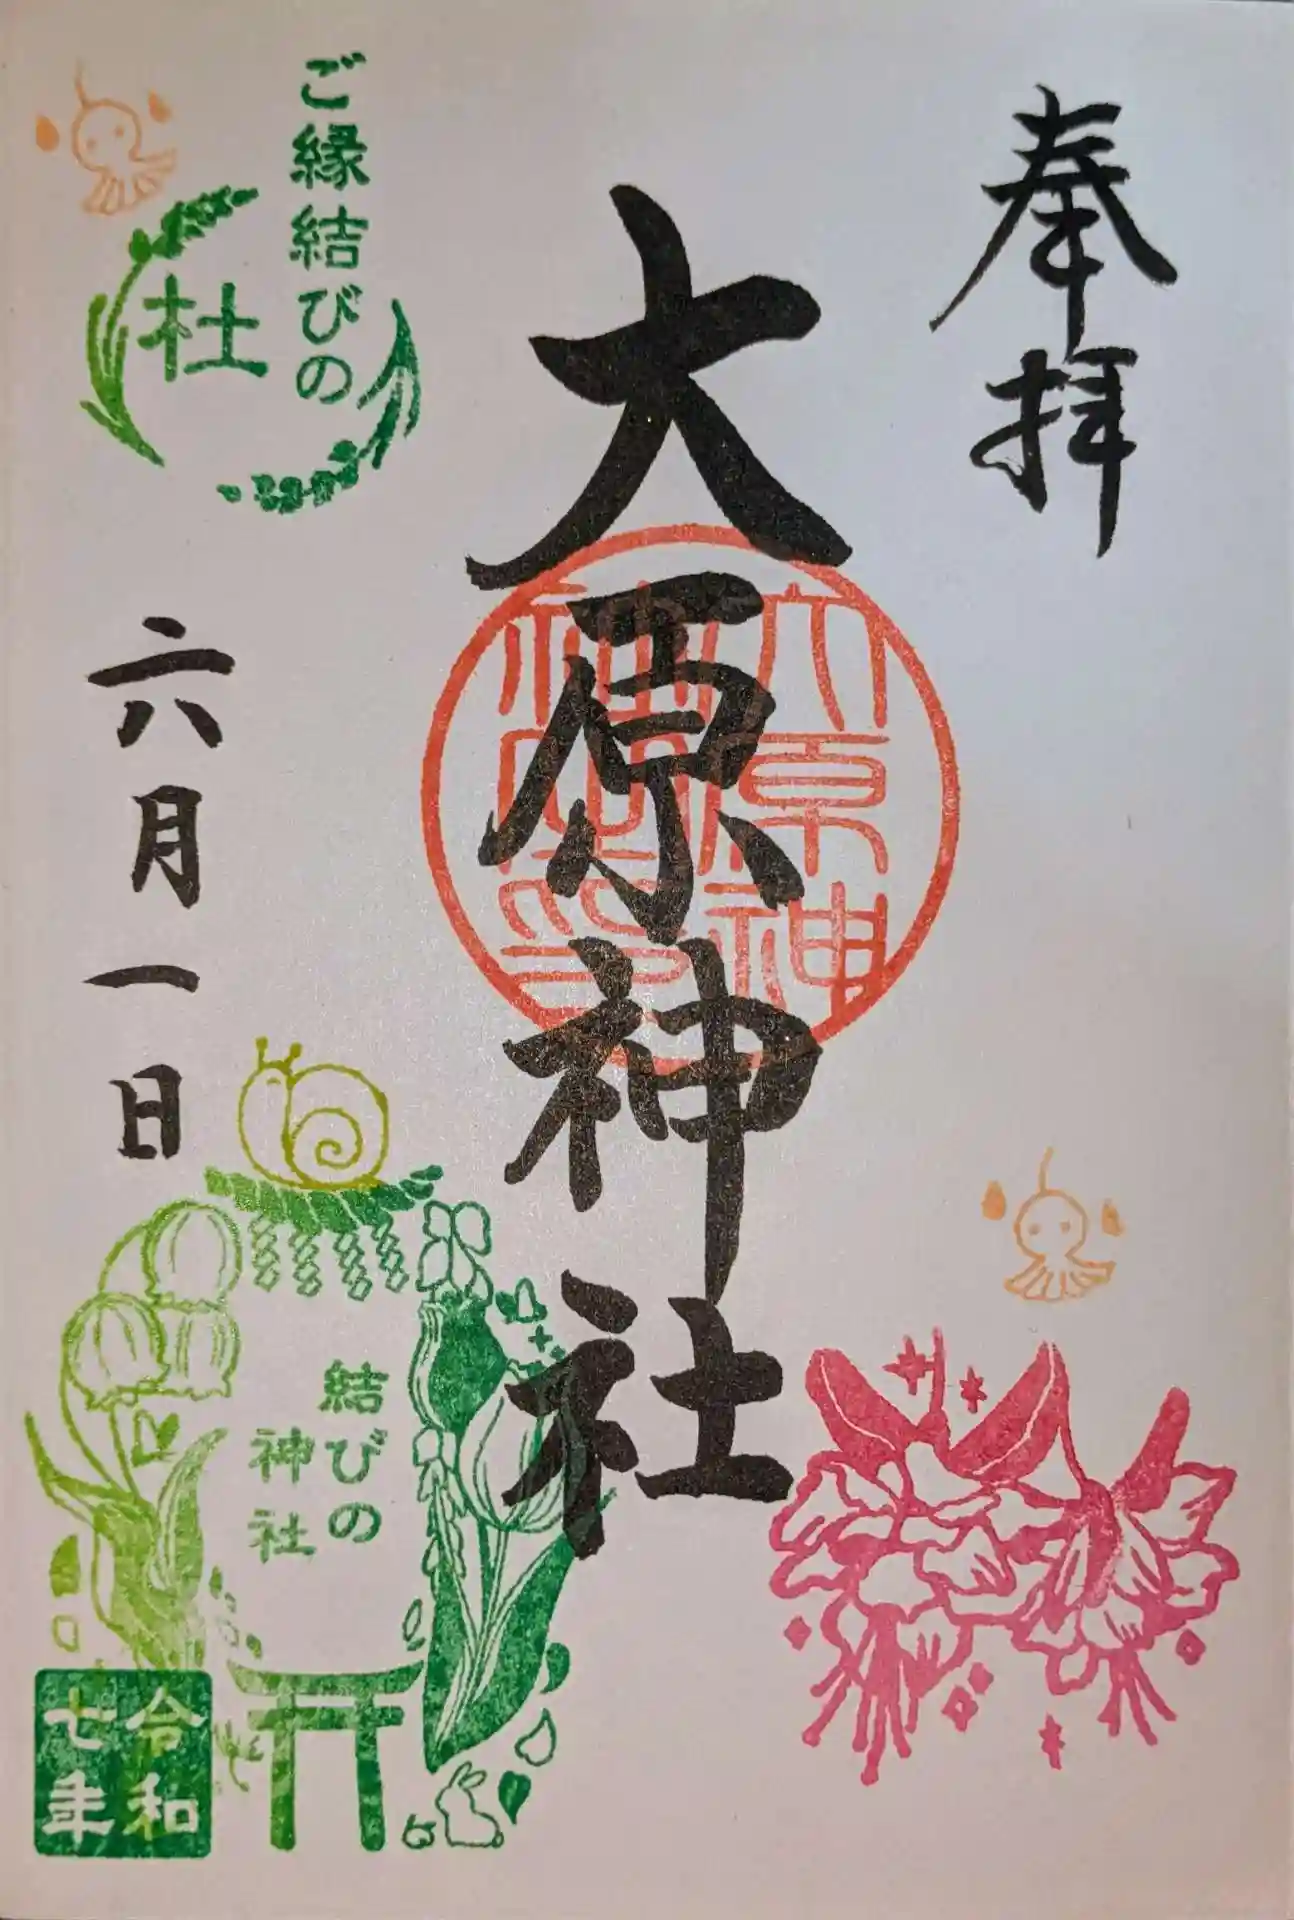 奉拝
大原神社
大原神
社御印
ご縁結びの
杜
六月一日
結びの
神社
令和
七年